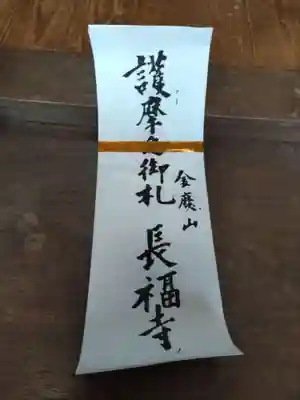 護摩御札
金廣山
長福寺